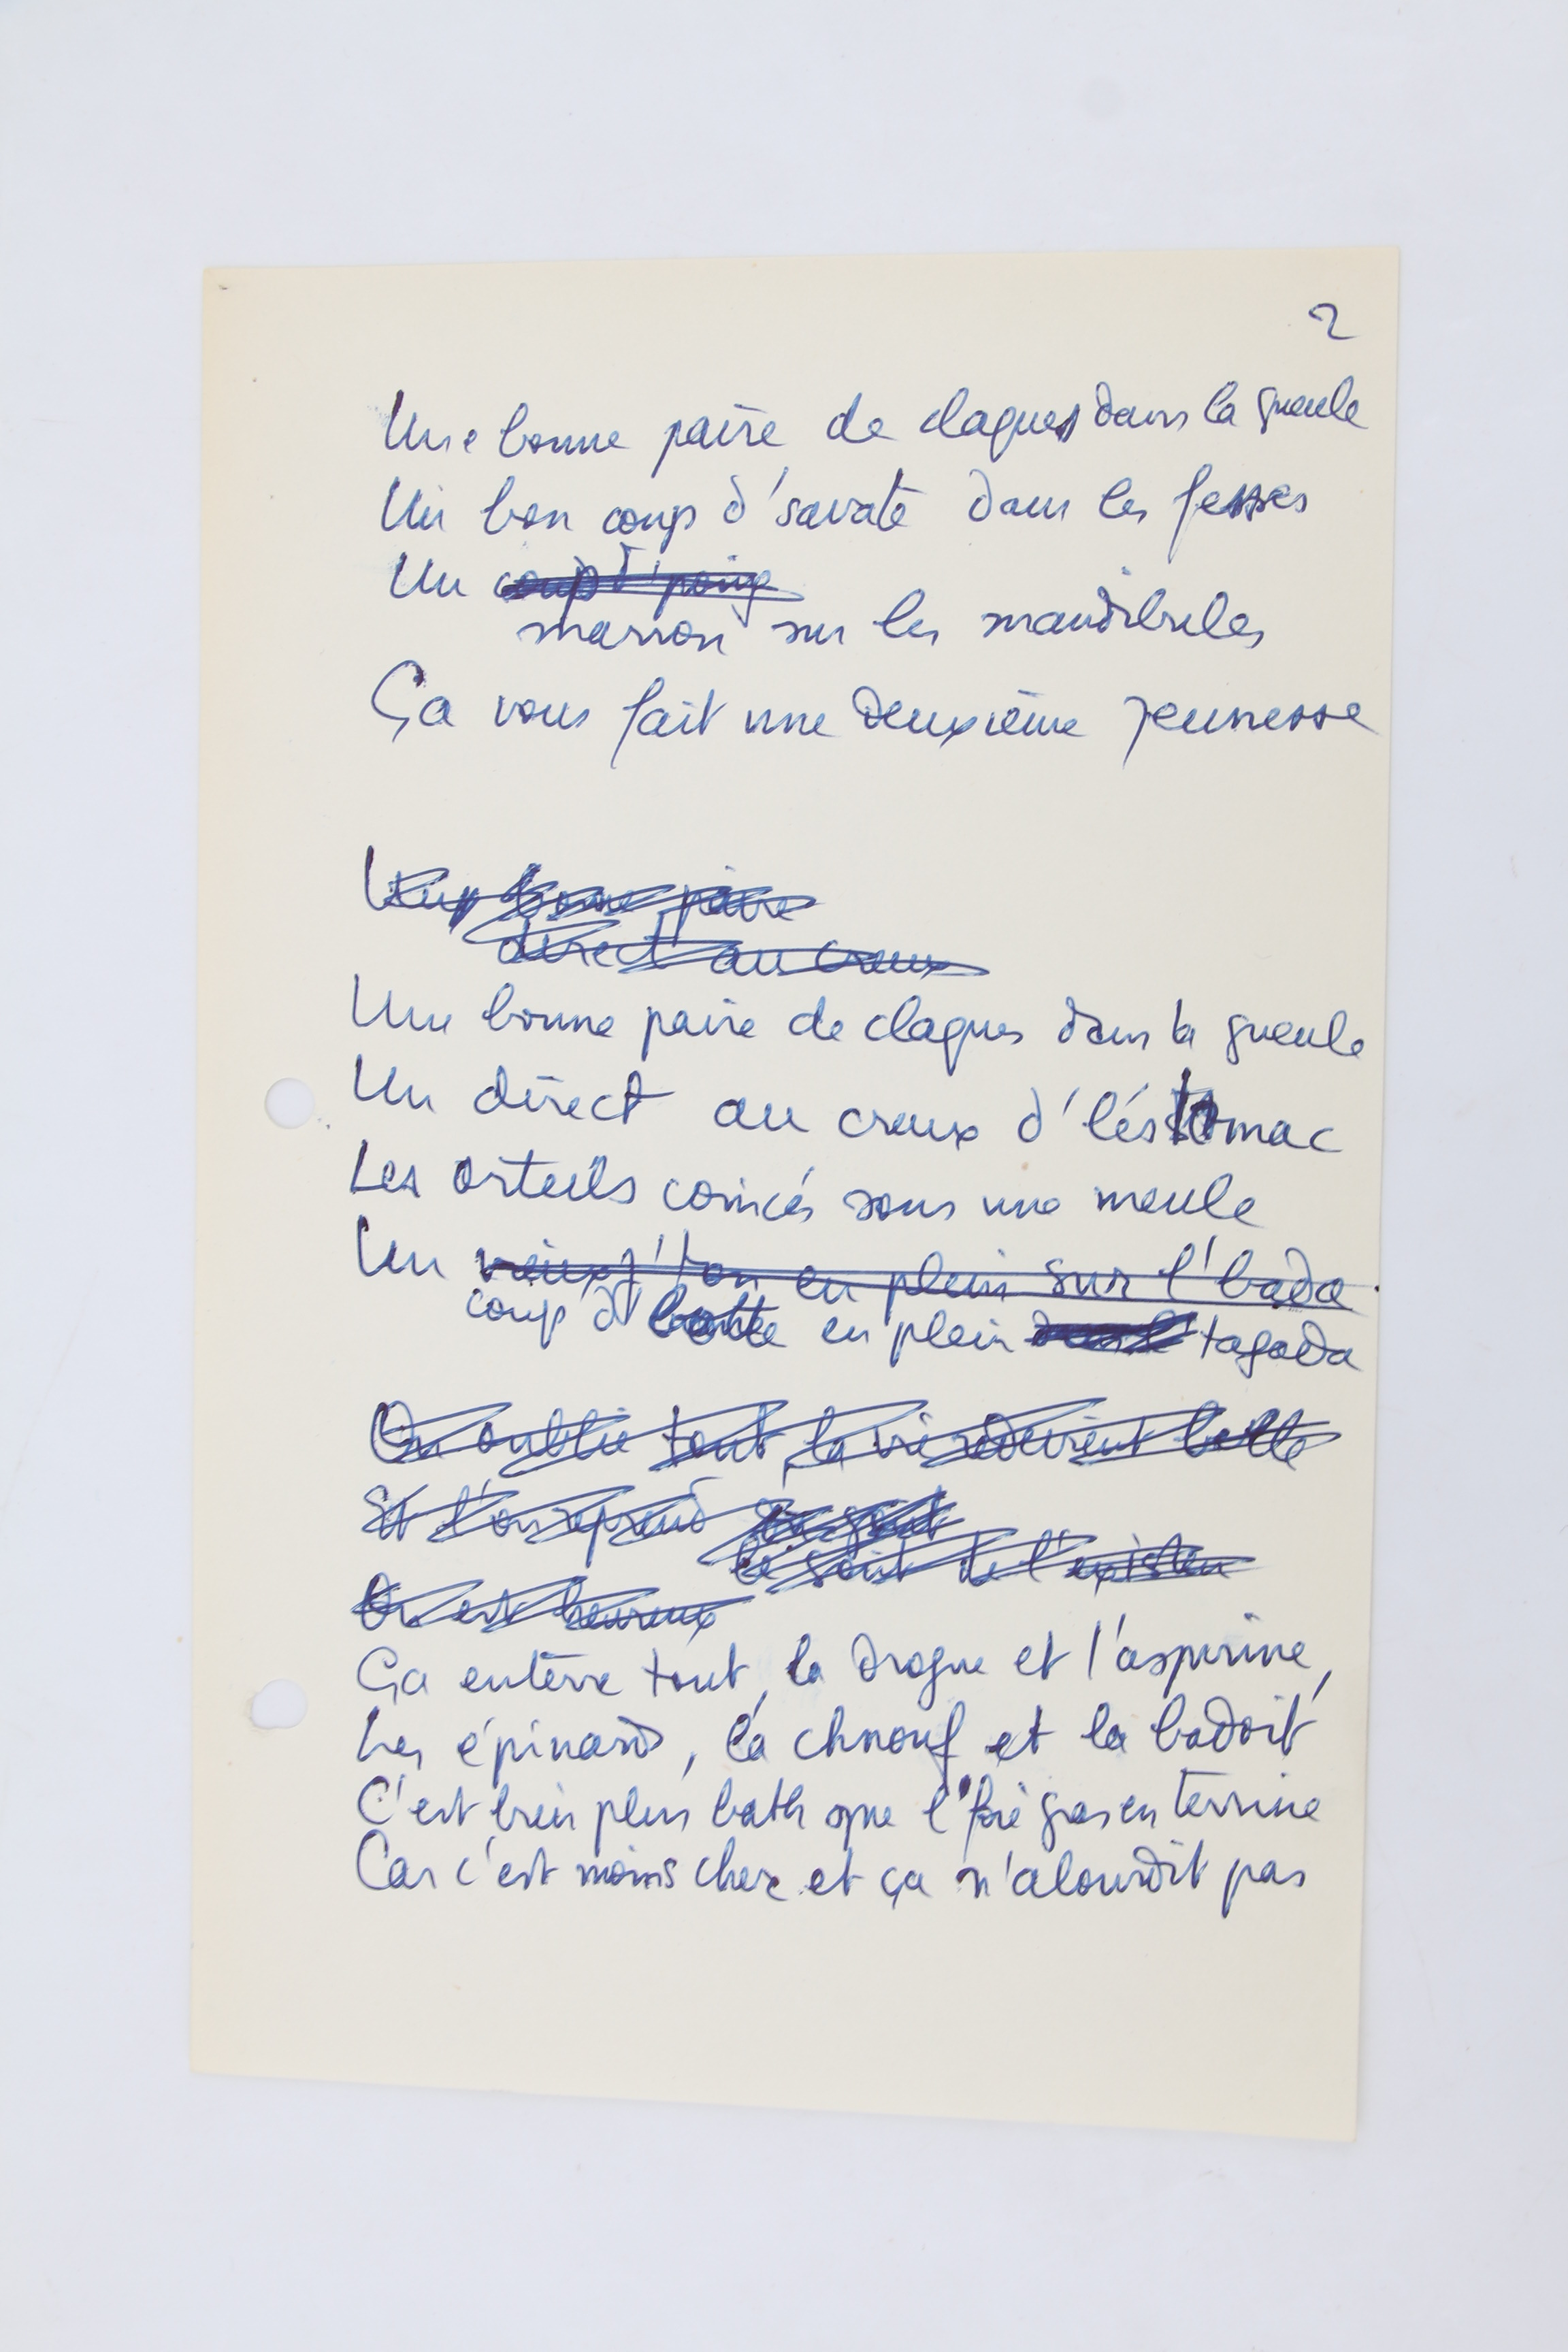 2
Une bonne paire de claques dans la gueule
Un bon coup d'savate dans les fesses
Un coup d'poing
marron sur les mandibules
Ça vous fait une deuxième jeunesse
bonne paire
direct au creux
Une bonne paire de claques dans la gueule
Un direct au creux d'l'éstomac
Les orteils coincés sous une meule
Un vieux j'ton en plein sur l'bada
coup d'botte en plein tagada
On oublie tout, la vie redevient belle
Et l'on reprend
le goût de l'existen
On est heureux
Ça enterre tout, la drogue et l'aspirine,
Les épinards, la chnouf et la badoit
C'est bien plus bath que l'foie gras en terrine
Car c'est moins cher et ça n'alourdit pas